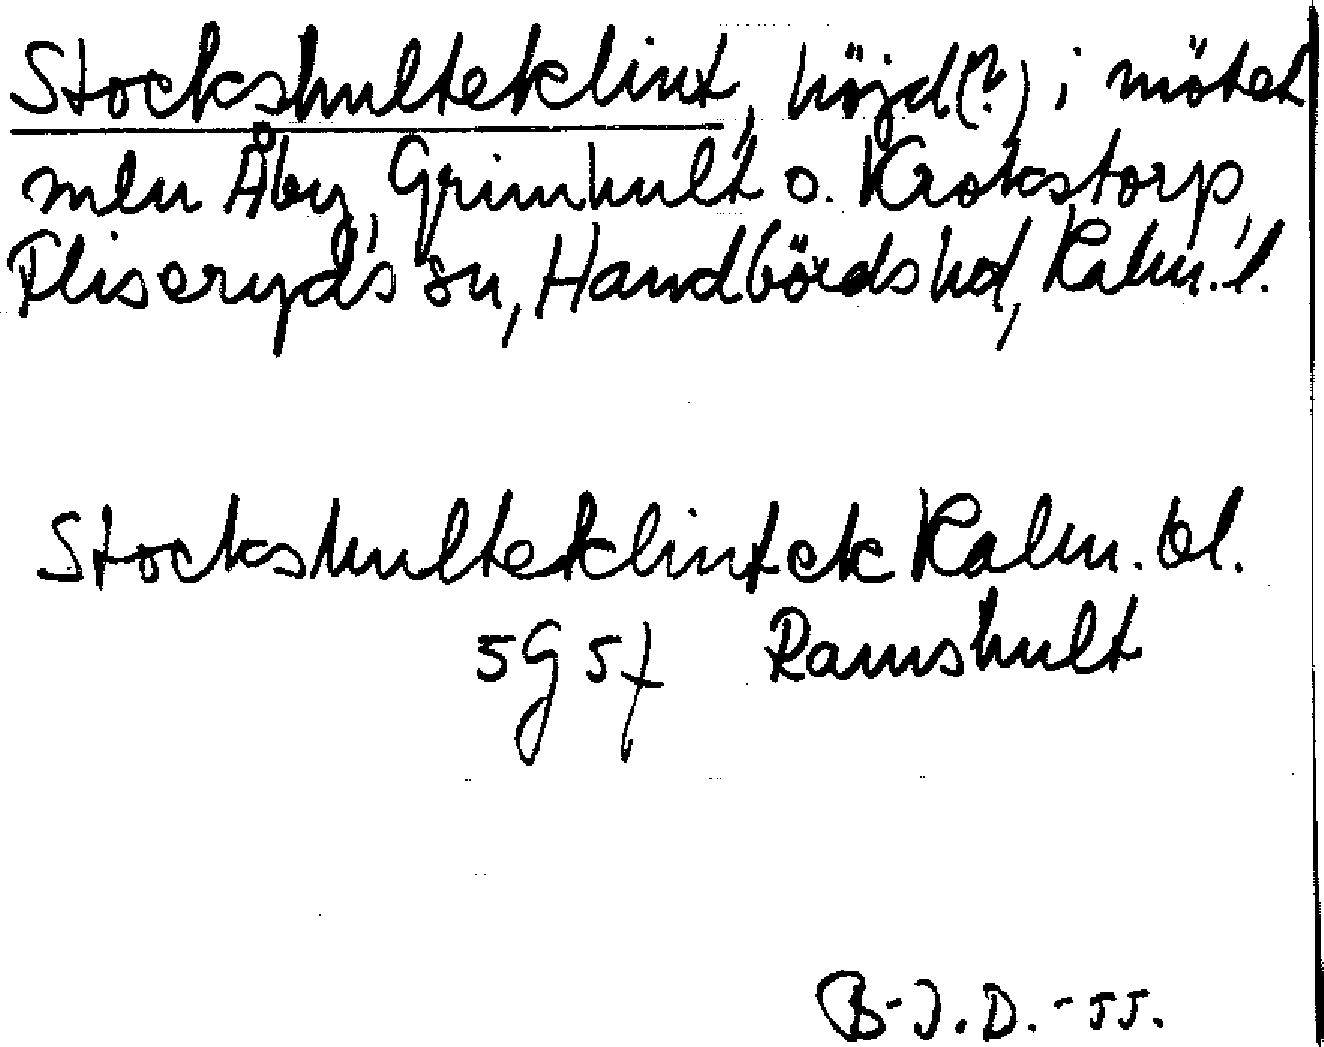 Stockshulteklint, höjd(?) i mötet
mln Åby, Grimhult o. Krokstorp,
Fliseryds sn, Handbörds hd, Kalm. l.
Stockshulteklint ek Kalm. bl.
5G5f Ramshult
B-J.D.-55.